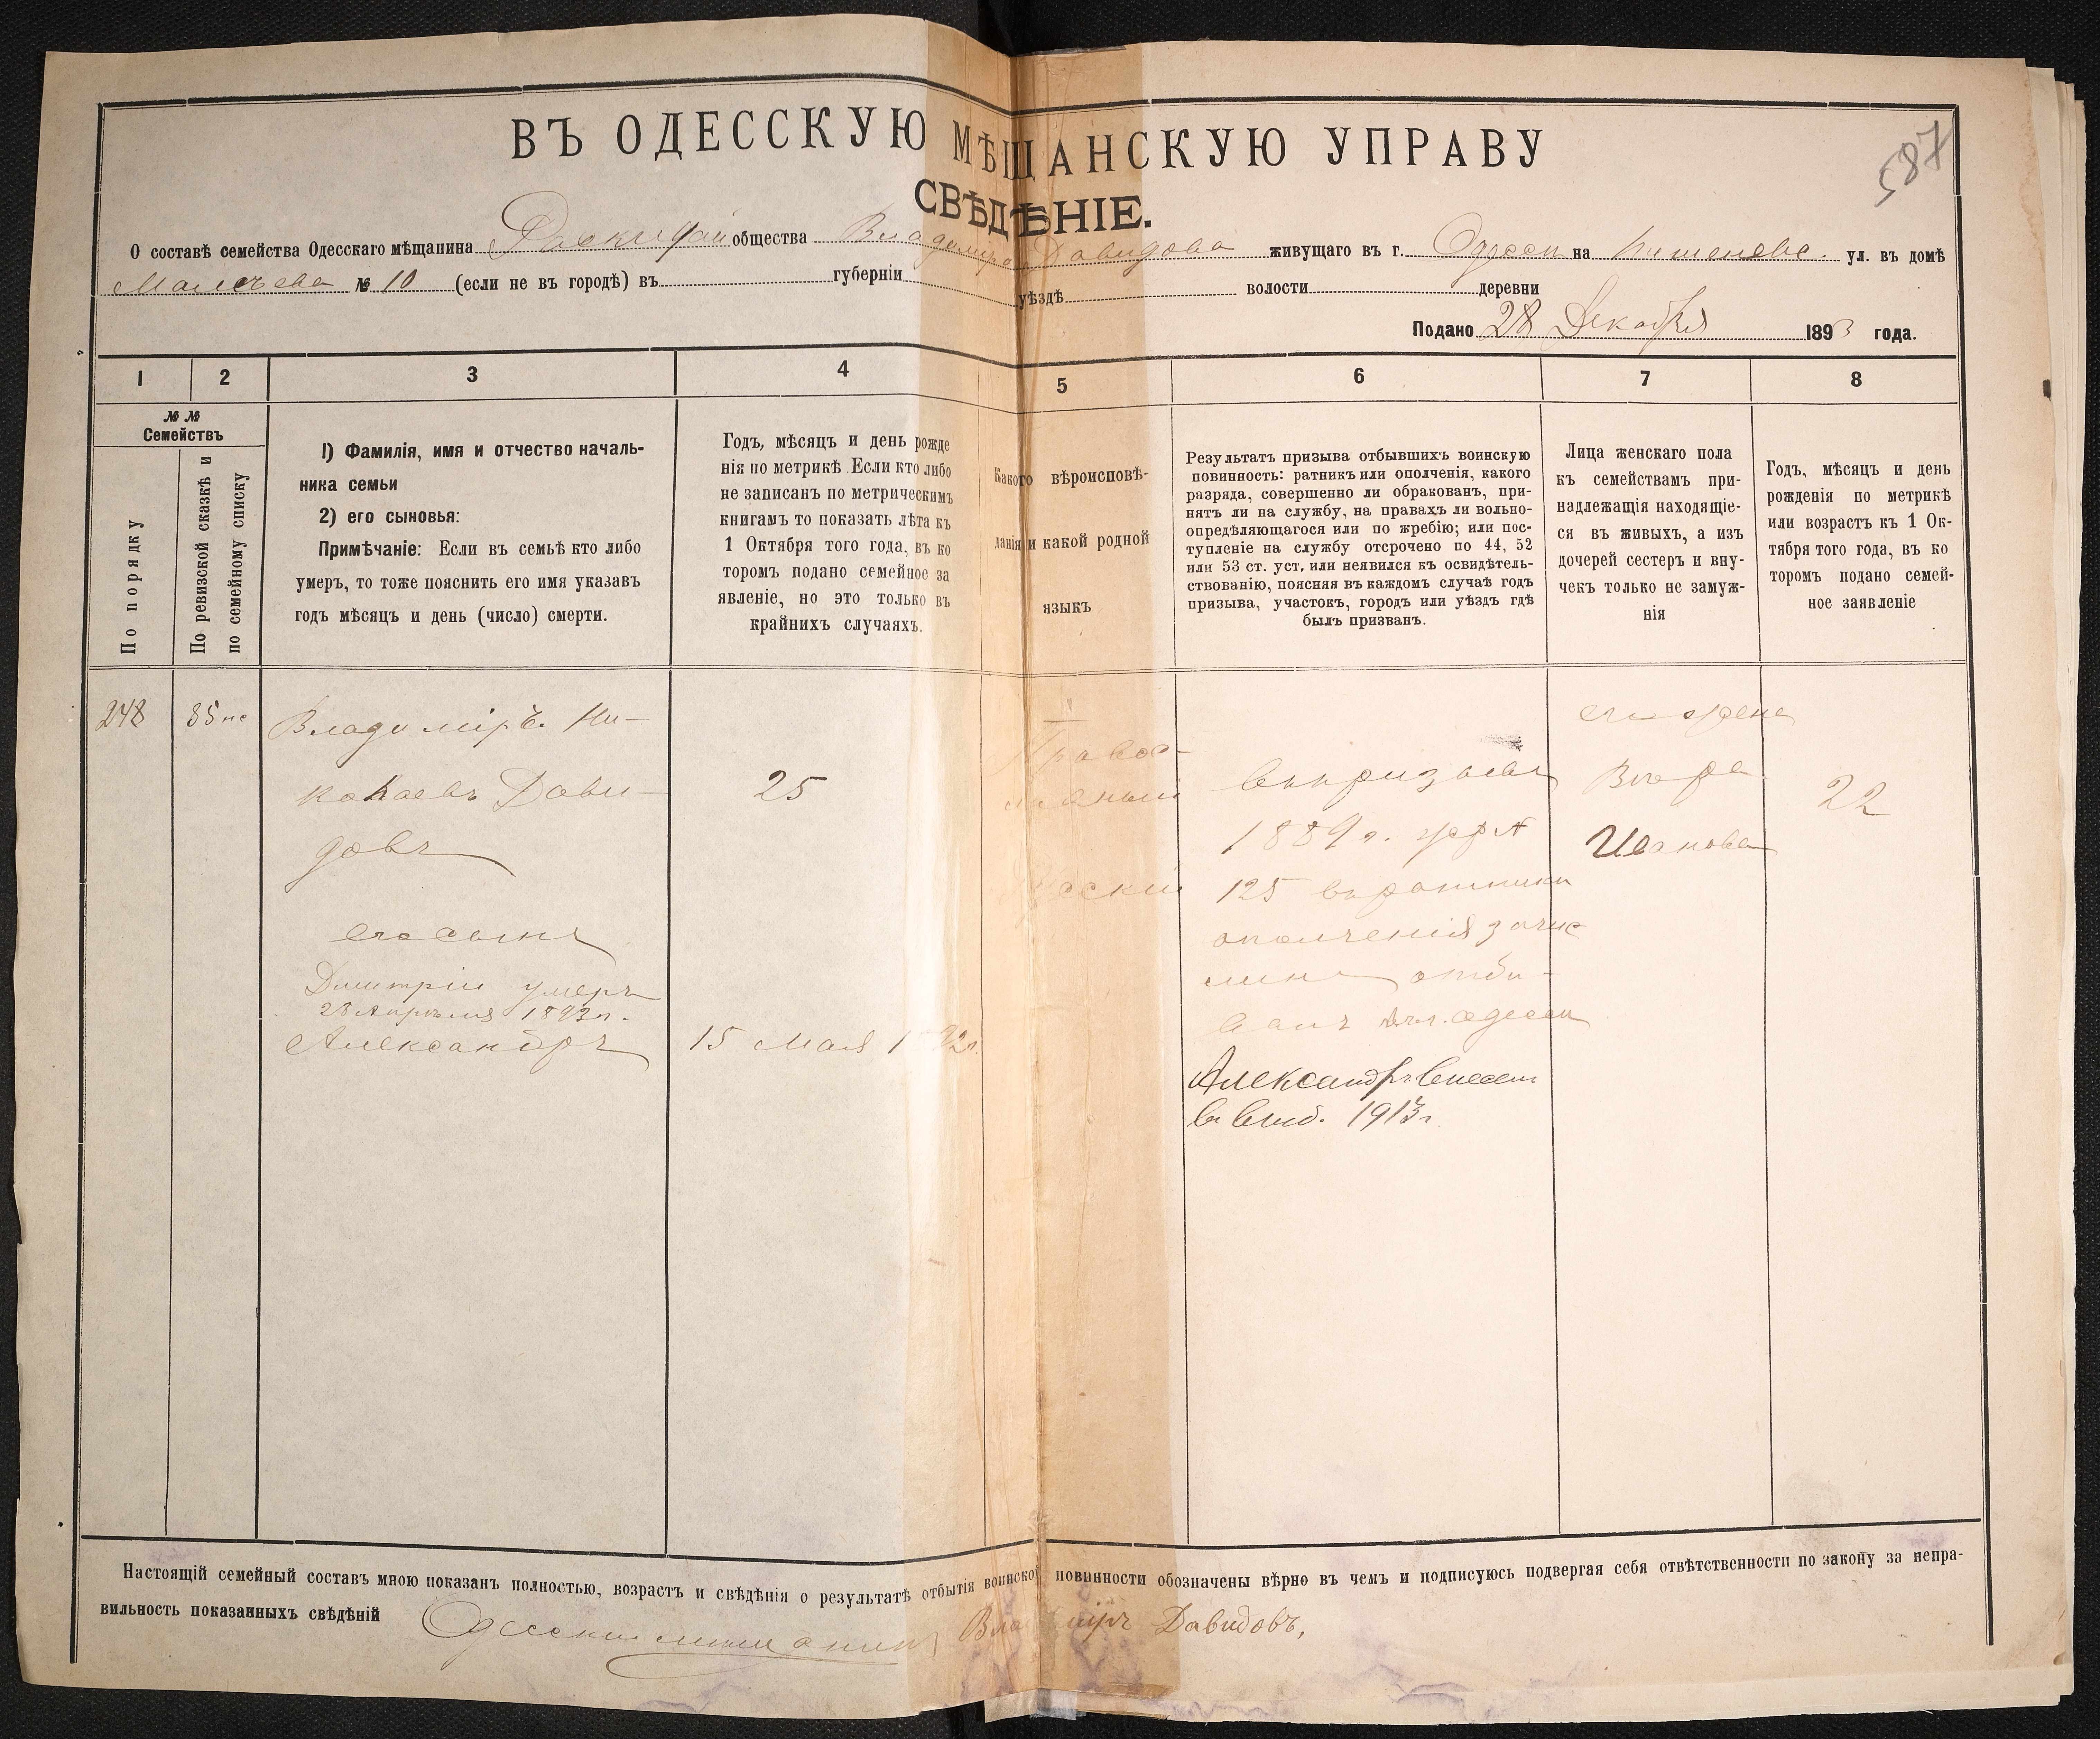 587
ВЪ ОДЕССКУЮ МѢЩАНСКУЮ УПРАВУ
СВѢДѢНІЕ.
О составѣ семейства Одесскаго мѣщанина общества Владиміра Давидова живущаго въ г. Одессѣ на ул. въ домѣ
№ 10 (если не въ городѣ) въ губерніи уѣздѣ волости деревни
Подано 28 Декабря 1893 года.
1 2 3 4 5 6 7 8
№ № Семействъ
По порядку
По ревизской сказкѣ и по семейному списку
1) Фамилія, имя и отчество началь-
ника семьи
2) его сыновья:
Примѣчаніе: Если въ семьѣ кто либо
умеръ, то тоже пояснить его имя указавъ
годъ мѣсяцъ и день (число) смерти.
Годъ, мѣсяцъ и день рожде
нія по метрикѣ Если кто либо
не записанъ по метрическимъ
книгамъ то показать лѣта къ
1 Октября того года, въ ко
торомъ подано семейное за
явленіе, но это только въ
крайнихъ случаяхъ.
Какого вѣроисповѣ-
данія и какой родной
языкъ
Результатъ призыва отбывшихъ воинскую
повинность: ратникъ или ополченія, какого
разряда, совершенно ли обракованъ, при-
нятъ ли на службу, на правахъ ли вольно-
опредѣляющагося или по жребію; или пос-
тупленіе на службу отсрочено по 44, 52
или 53 ст. уст. или неявился къ освидѣтель-
ствованію, поясняя въ каждомъ случаѣ годъ
призыва, участокъ, городъ или уѣздъ гдѣ
былъ призванъ.
Лица женскаго пола
къ семействамъ при-
надлежащія находящіе-
ся въ живыхъ, а изъ
дочерей сестеръ и вну-
чекъ только не замуж-
нія
Годъ, мѣсяцъ и день
рожденія по метрикѣ
или возрастъ къ 1 Ок-
тября того года, въ ко
торомъ подано семей-
ное заявленіе
248
Владиміръ Ни-
колаевъ Дави-
довъ
25
Правос-
лавный
Русскій
въ призывѣ
1889 г. жер №
125 въ ратники
ополченія зачис
ленъ отбы-
валъ въ г. Одессѣ
его жена
Вѣра
Иванова
22
его сынъ
Дмитрій умеръ
28 Апрѣля 1893 г.
Александръ
15 Мая 1892 г.
Александръ внесенъ
въ 1913 г.
Настоящій семейный составъ мною показанъ полностью, возрастъ и свѣдѣнія о результатѣ отбытія воинской повинности обозначены вѣрно въ чемъ и подписуюсь подвергая себя отвѣтственности по закону за непра-
вильность показанныхъ свѣдѣній Одесскій мѣщанинъ Владиміръ Давидовъ,